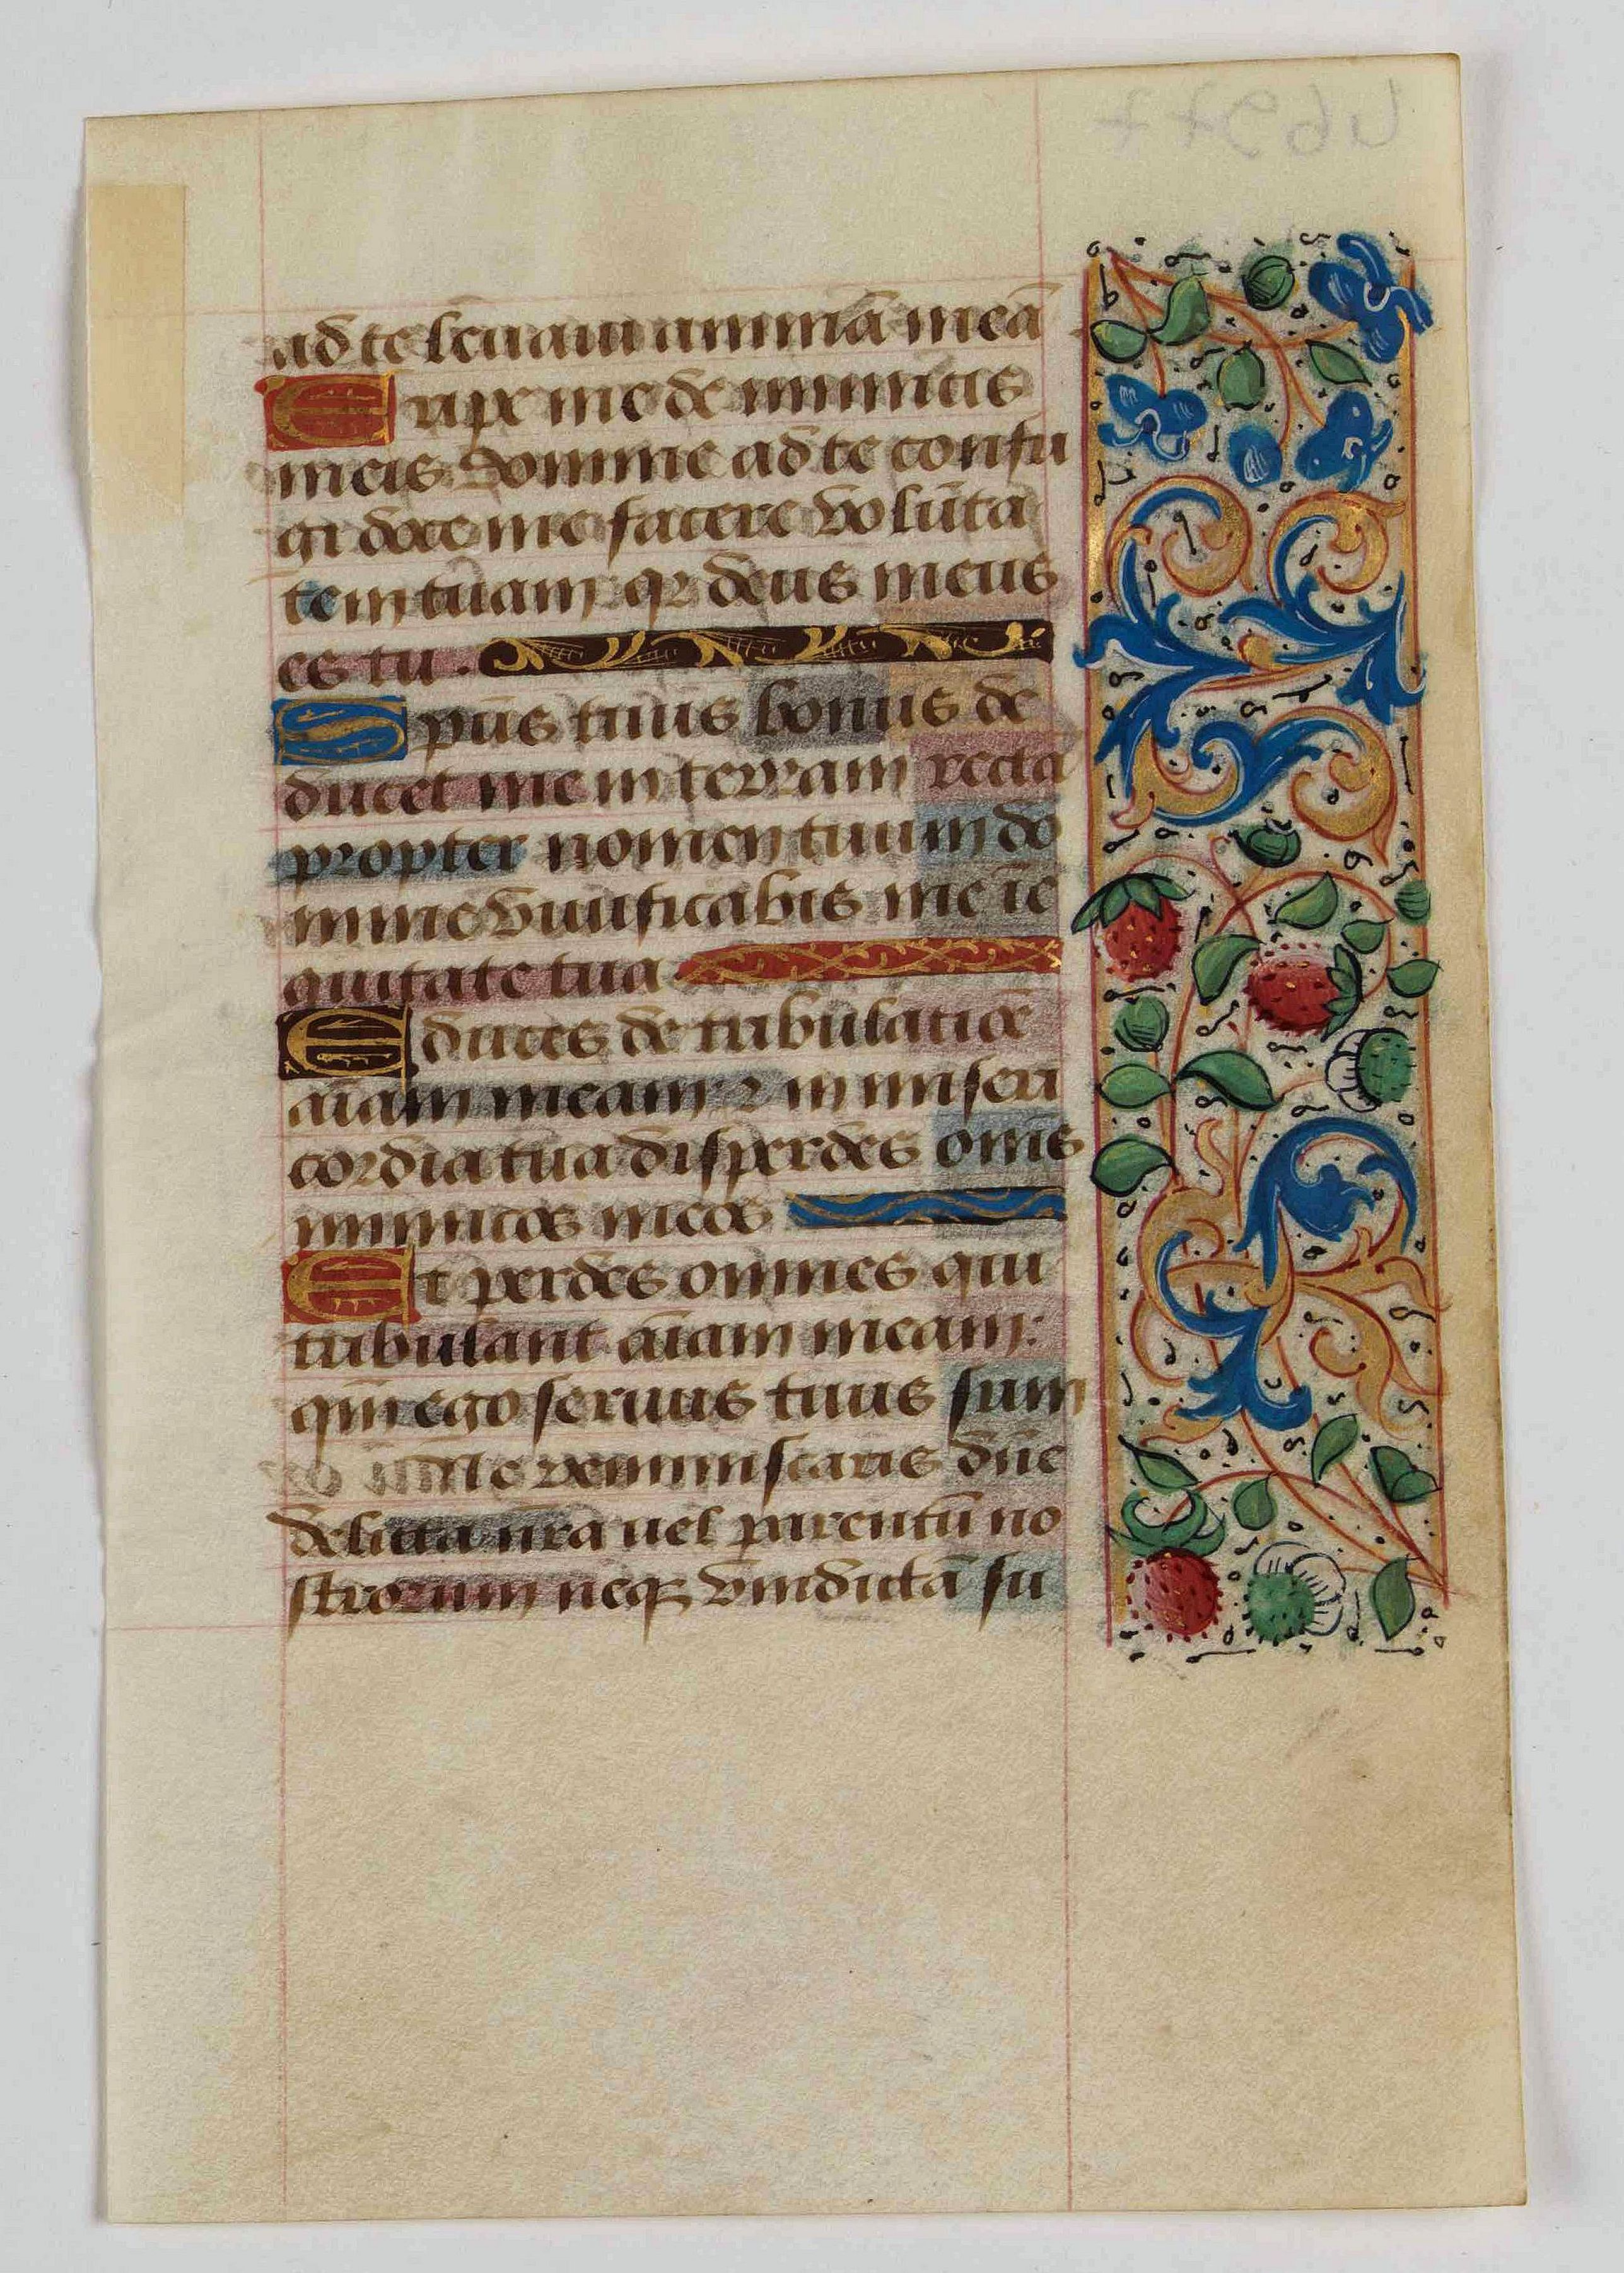 ad te leuaui animā meā
Eripe me de inimicis
meis domine ad te confu
gi doce me facere volūta
tem tuam qr deus meus
es tu.
Spūs tuus bonus de
ducet me in terram recta
propter nomen tuum do
mine viuificabis me ī e
quitate tua
Educes de tribulatiōe
aīam meam ⁊ in miseri
cordia tua disperdes oīnis
inimicos meos
Et perdes omnes qui
tribulant aīam meam:
qm̄ ego seruus tuus sum
Ne reminiscaris dn̄e
delicta nr̄a uel parentū no
strorum neq vindictā su